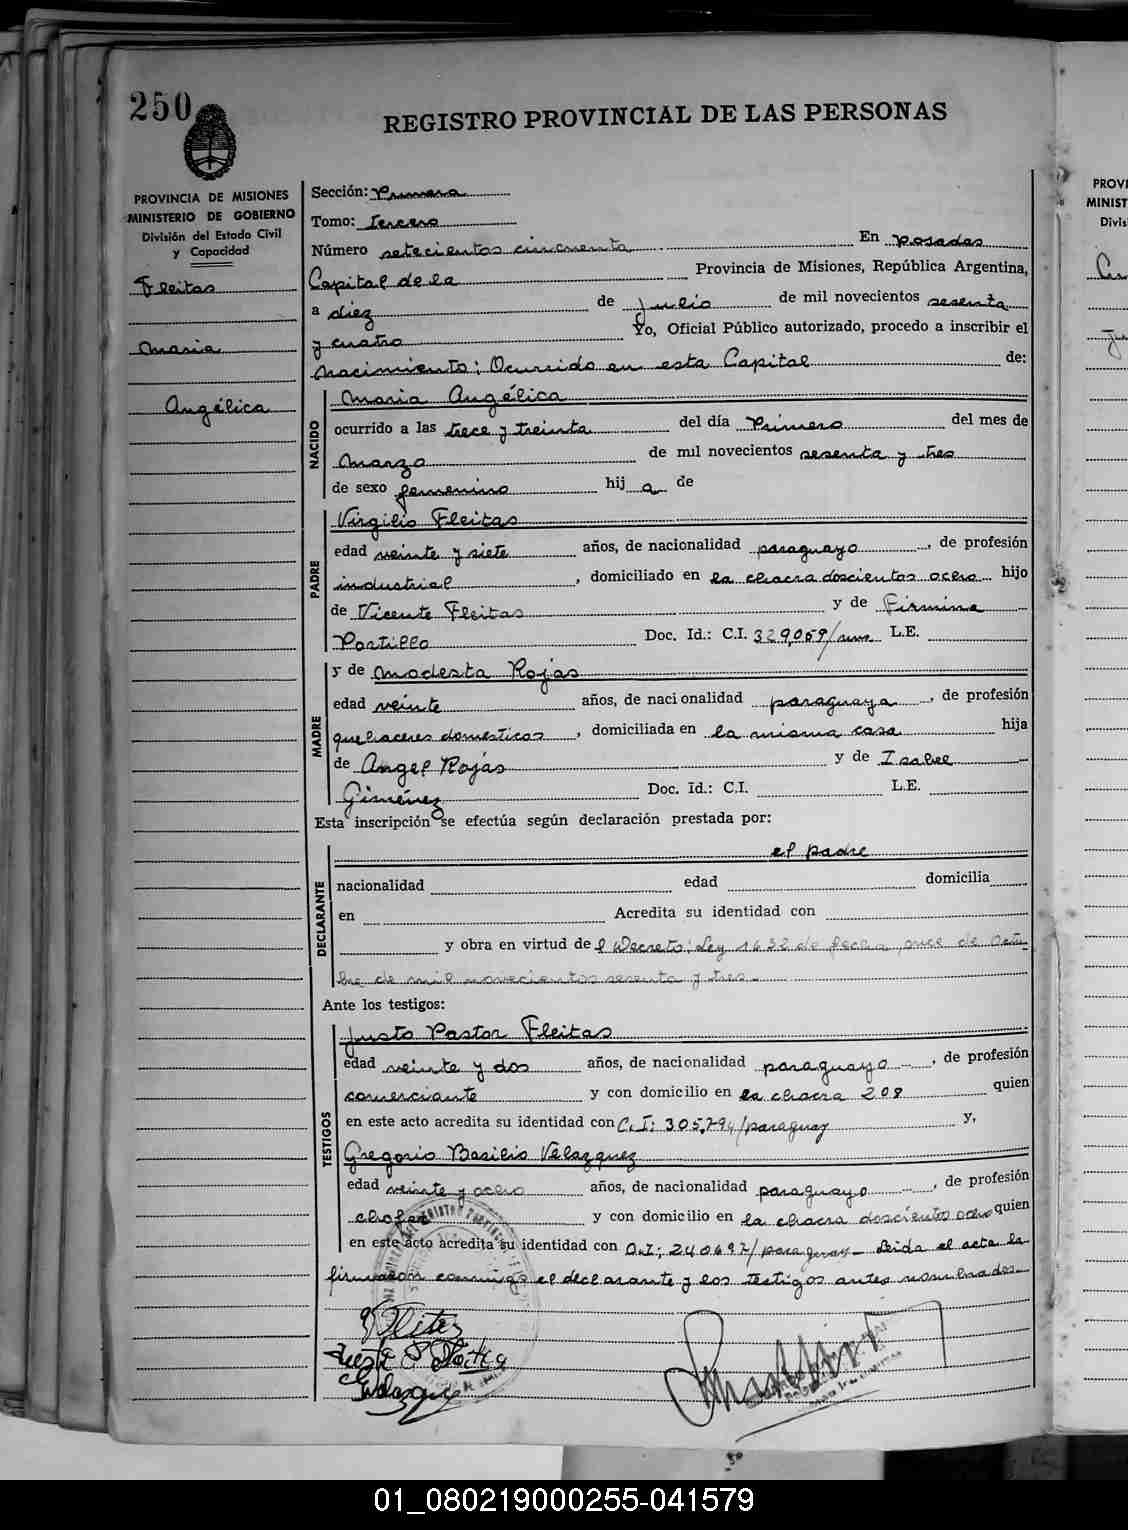 250
REGISTRO PROVINCIAL DE LAS PERSONAS
PROVINCIA DE MISIONES
MINISTERIO DE GOBIERNO
División del Estado Civil
y Capacidad
Fleitas
Maria
Angélica
Sección: Primera
Tomo: tercero
Número setecientos cincuenta En Posadas
Capital de la Provincia de Misiones, República Argentina,
a diez de Julio de mil novecientos sesenta
y cuatro Yo, Oficial Público autorizado, procedo a inscribir el
Nacimiento: Ocurrido en esta Capital de:
NACIDO
Maria Angélica
ocurrido a las trece y treinta del día Primero del mes de
Marzo de mil novecientos sesenta y tres
de sexo femenino hij a de
PADRE
Virgilio Fleitas
edad veinte y siete años, de nacionalidad paraguayo, de profesión
industrial, domiciliado en la chacra doscientos ocho hijo
de Vicente Fleitas y de Firmina
Portillo Doc. Id.: C.I. 329,059/ L.E.
MADRE
y de Modesta Rojas
edad veinte años, de nacionalidad paraguaya, de profesión
quehaceres domesticos, domiciliada en la misma casa hija
de Angel Rojas y de Isabel
Giménez Doc. Id.: C.I. L.E.
Esta inscripción se efectúa según declaración prestada por:
DECLARANTE
el padre
nacionalidad edad domicilia
en Acredita su identidad con
y obra en virtud de l Decreto: Ley 1632 de fecha once de Octu-
bre de mil novecientos sesenta y tres.-
Ante los testigos:
TESTIGOS
Justo Pastor Fleitas
edad veinte y dos años, de nacionalidad paraguayo, de profesión
comerciante y con domicilio en la chacra 208 quien
en este acto acredita su identidad con C.I: 305,794/paraguay y,
Gregorio Basilio Velazquez
edad veinte y ocho años, de nacionalidad paraguayo, de profesión
chofer y con domicilio en la chacra doscientos ocho quien
en este acto acredita su identidad con C.I; 240697/paraguay- Leida el acta la
firmaron conmigo el declarante y los testigos antes nombrados.-
PROVI
MINIST
Divis
01_080219000255-041579